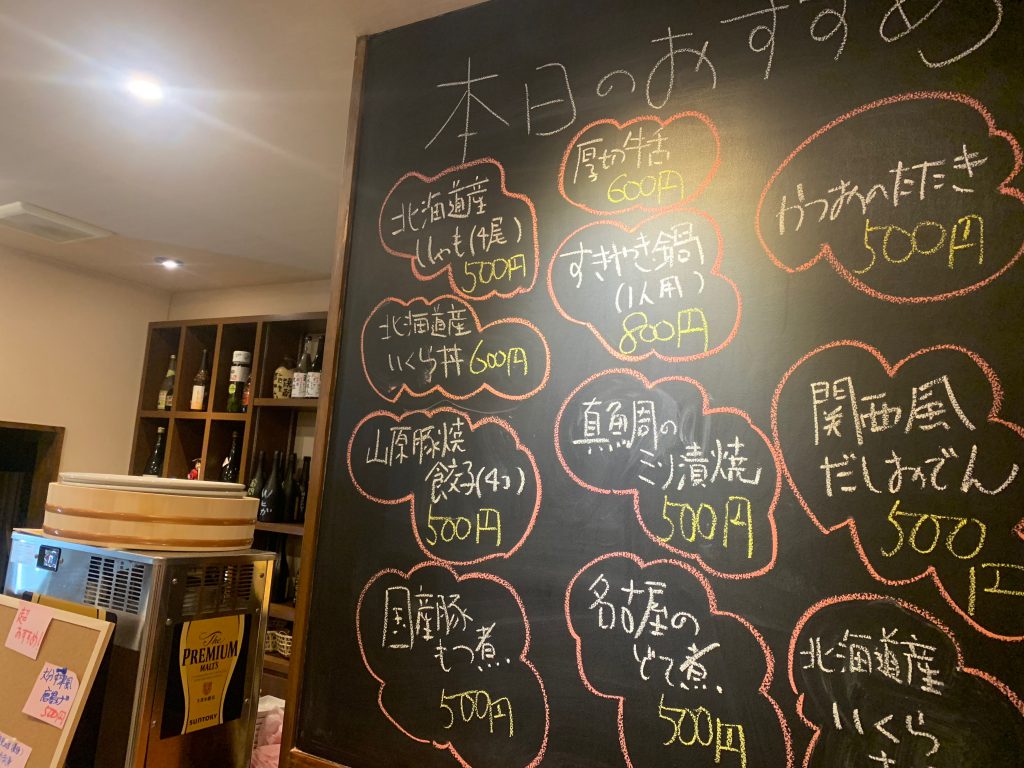 本日のおすすめ
北海道産
ししゃも(4尾)
500円
北海道産
いくら丼 600円
山原豚焼
餃子(4コ)
500円
国産豚
もつ煮
500円
厚切牛舌
600円
すきやき鍋
(1人用)
800円
真鯛の
ミソ漬焼
500円
名古屋の
どて煮
500円
かつおのたたき
500円
関西風
だしおでん
500
円
北海道産
いくら
The
PREMIUM
MALT'S
SUNTORY
超
おすすめ
500円